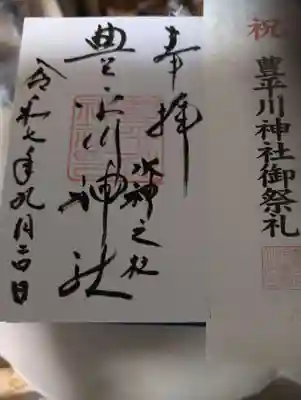 祝
豊平川神社御祭礼
奉拝
水神之社
豊平川神社
令和七年九月